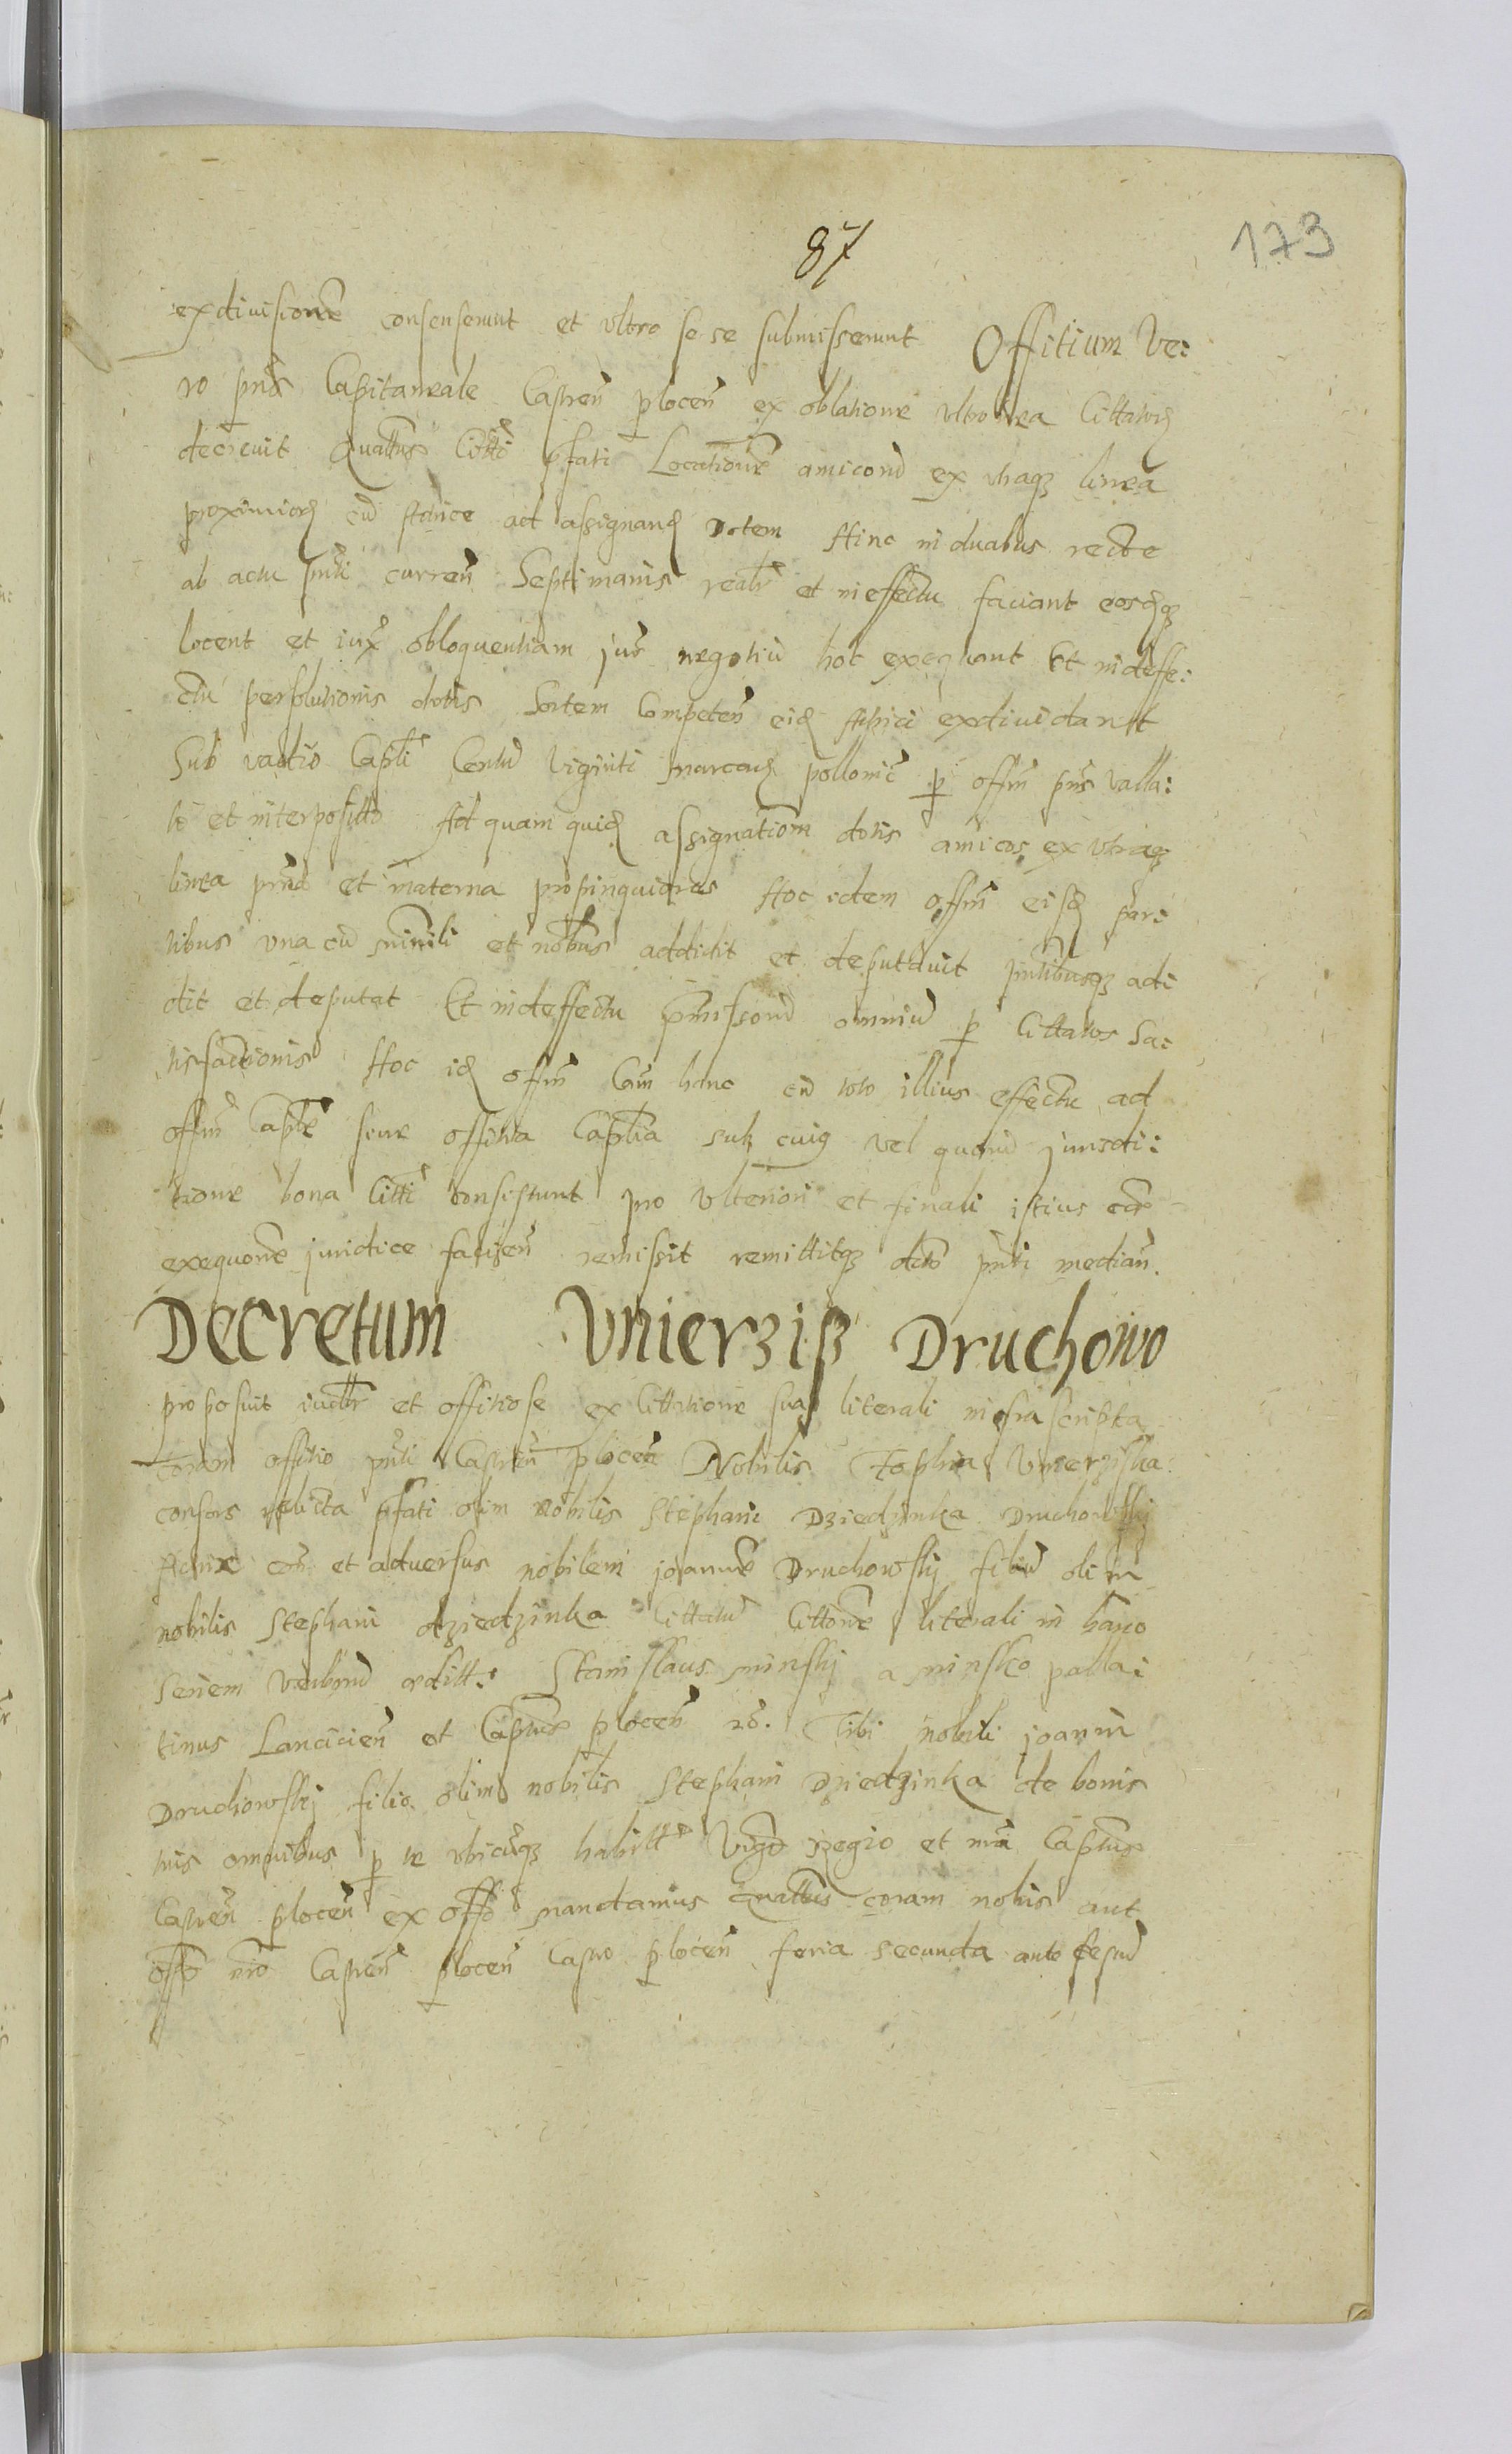 87
173
exdivisione consenserunt et ultro sese submisserunt Offitium Ve:
ro pns Capitaneale Castren plocen ex oblatione ultronea Cittatorz
decrevit Quattus Citti pfati Locatione amicoru ex utraqz linea
proximiorz cu Actrice ad assignandz Dotem Hinc in duabus recte
ab actu pnti curren Septimanis realr et in effectu faciant eosdqz
locent et iux obloquentiam jur negotiu hoc exequant Et in deffe:
ctu persolutionis dotis Sortem Competen eidz Actrici exdividant
Sub vadio Capli Centu Viginti marcarz pollonic p offm pns valla:
to et interposito Ad quam quidz assignationem dotis amicos ex utraqz
linea prna et materna propinquiores Hoc idem offm eisdz par:
tibus una cu minrli et nobus addidit et deputavit pntibusqz ad:
dit et deputat Et in deffectu pmissoru omniu p Cittatos Sa:
tisfactionis Hoc idz offm Cam hanc cu toto illius effectu ad
offm Caple seue offitia Caplia sub cuig vel quoru jurisdi:
tione bona Citti consistunt pro Ulteriori et finali istius cae
exequone juridice facien remissit remittitqz dcto pnti median.
Decretum Unierzisz Druchowo
proposuit iudlr et offitiose ex Cittatione sua literali infrascripta
Coram offitio pnti Castren plocen Nobilis Zophia Unierziska
consors relicta pfati olim nobilis Stephani Dziedzinka Druchowskj
Actrix con et adversus nobilem joanne Druchowskj filiu olim
nobilis Stephani dziedzinka Cittatu Cittone literali in hanc
seriem verboru aeditt: Stanislaus minskj a minsko palla:
tinus Lancicien et Captus plocen rc. Tibi nobili joanni
Druchowskj filio olim nobilis Stephani Dziedzinka de bonis
tuis omnibus p te ubicuqz habitt Vigo regio et nra Captus
Castren plocen ex offo mandamus Quattus coram nobis aut
offo nro Castren plocen Castro plocen feria secunda ante festu